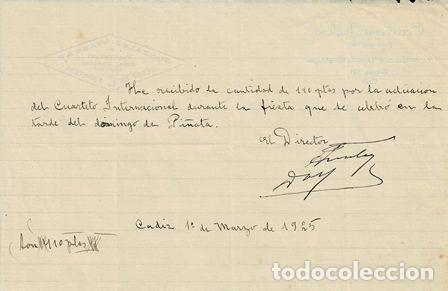 He recibido la cantidad de 110 ptas por la actuacion
del Cuarteto Internacional durante la fiesta que se celebró en la
tarde del domingo de Piñata.
El Director
Cadiz 1º de Marzo de 1925
Son 110 ptas
todocoleccion.net